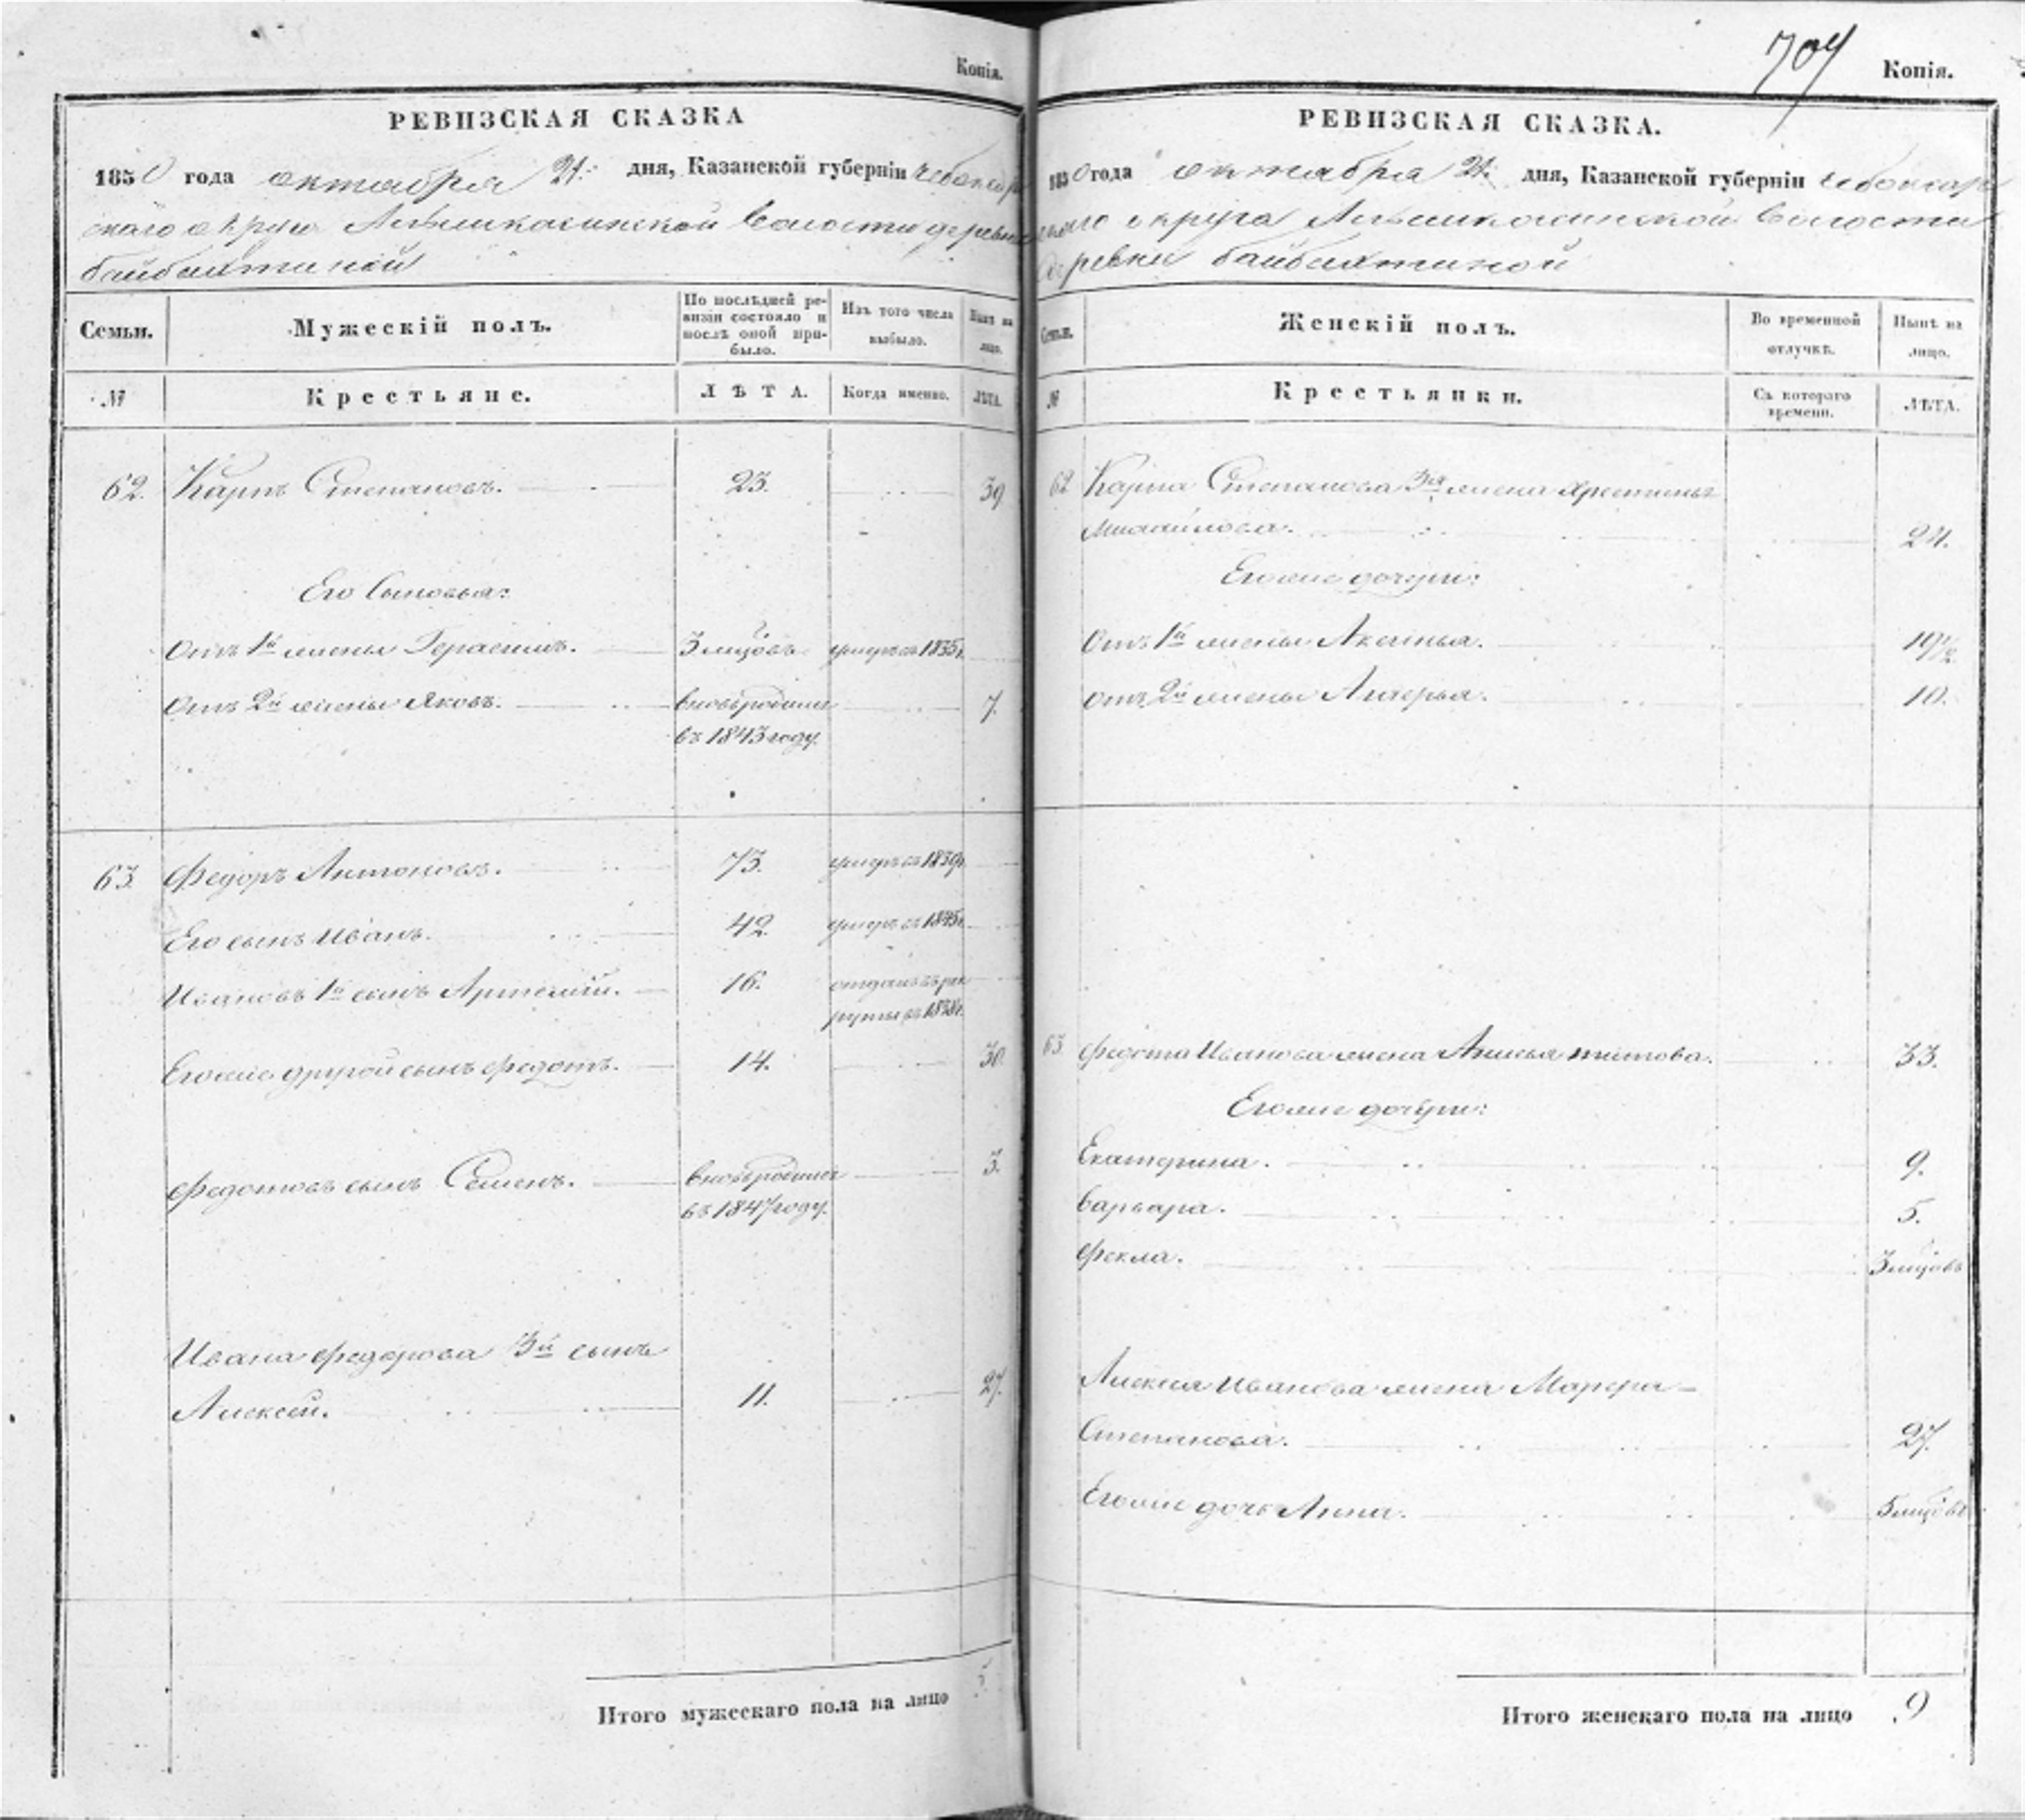 Копія.
РЕВИЗСКАЯ СКАЗКА
1850 года октября 21: дня, Казанской губерніи Чебоксар
скаго округа Алымкасинской волости деревни
Байбахтиной
Семьи.
Мужескій полъ.
По послѣдней ре-
визіи состояло и
послѣ оной при-
было.
Изъ того числа
выбыло.
Нынѣ на
лицо.
№
Крестьяне.
ЛѢТА.
Когда именно.
ЛѢТА.
62. Карпъ Степановъ. 23. 39
Его сыновья:
Отъ 1й жены Герасимъ. 3 мцовъ умеръ въ 1835г.
Отъ 2й жены Яковъ. вновьродился 7.
въ 1843 году.
63. Федоръ Антоновъ. 73. умеръ въ 1839г.
Его сынъ Иванъ. 42. умеръ въ 1845г.
Ивановъ 1й сынъ Артемій. 16. отданъ въ рек
руты въ 1838г.
Его же другой сынъ Федотъ. 14. 30
Федотовъ сынъ Семенъ. вновьродился 3.
въ 1847 году.
Ивана Федорова 3й сынъ
Алексей. 11. 27.
Итого мужескаго пола на лицо 5
704
Копія.
РЕВИЗСКАЯ СКАЗКА.
1850 года октября 21: дня, Казанской губерніи Чебоксар
скаго округа Алымкасинской волости
деревни Байбахтиной
Семьи.
Женскій полъ.
Во временной
отлучкѣ.
Нынѣ на
лицо.
№
Крестьянки.
Съ котораго
времени.
ЛѢТА.
62 Карпа Степанова 3я жена Хрестинья
Михайлова. 24.
Его же дочери:
Отъ 1й жены Аксинья. 19 1/2
Отъ 2й жены Лукерья. 10.
63. Федота Иванова жена Анисья Титова. 33.
Его же дочери:
Екатерина. 9.
Варвара. 5.
Фекла. 3 мцовъ
Алексея Иванова жена Марфра-
Степанова. 27.
Его же дочь Анна. 5 мцовъ
Итого женскаго пола на лицо 9